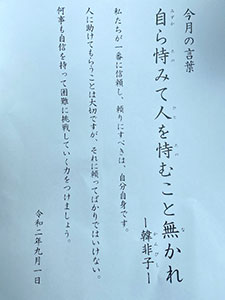 今月の言葉
自ら恃みて人を恃むこと無かれ
―韓非子―
私たちが一番に信頼し、頼りにすべきは、自分自身です。
人に助けてもらうことは大切ですが、それに頼ってばかりではいけない。
何事も自信を持って困難に挑戦していく力をつけましょう。
令和二年九月一日